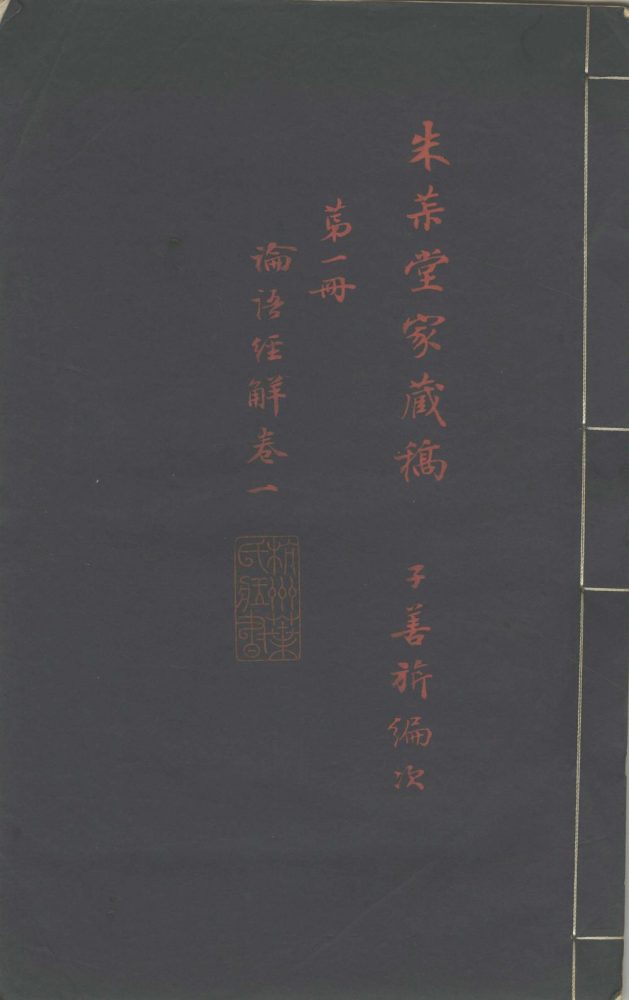 朱茮堂家藏稿
子善旂編次
第一冊
論語經解卷一
杭州葉氏藏書